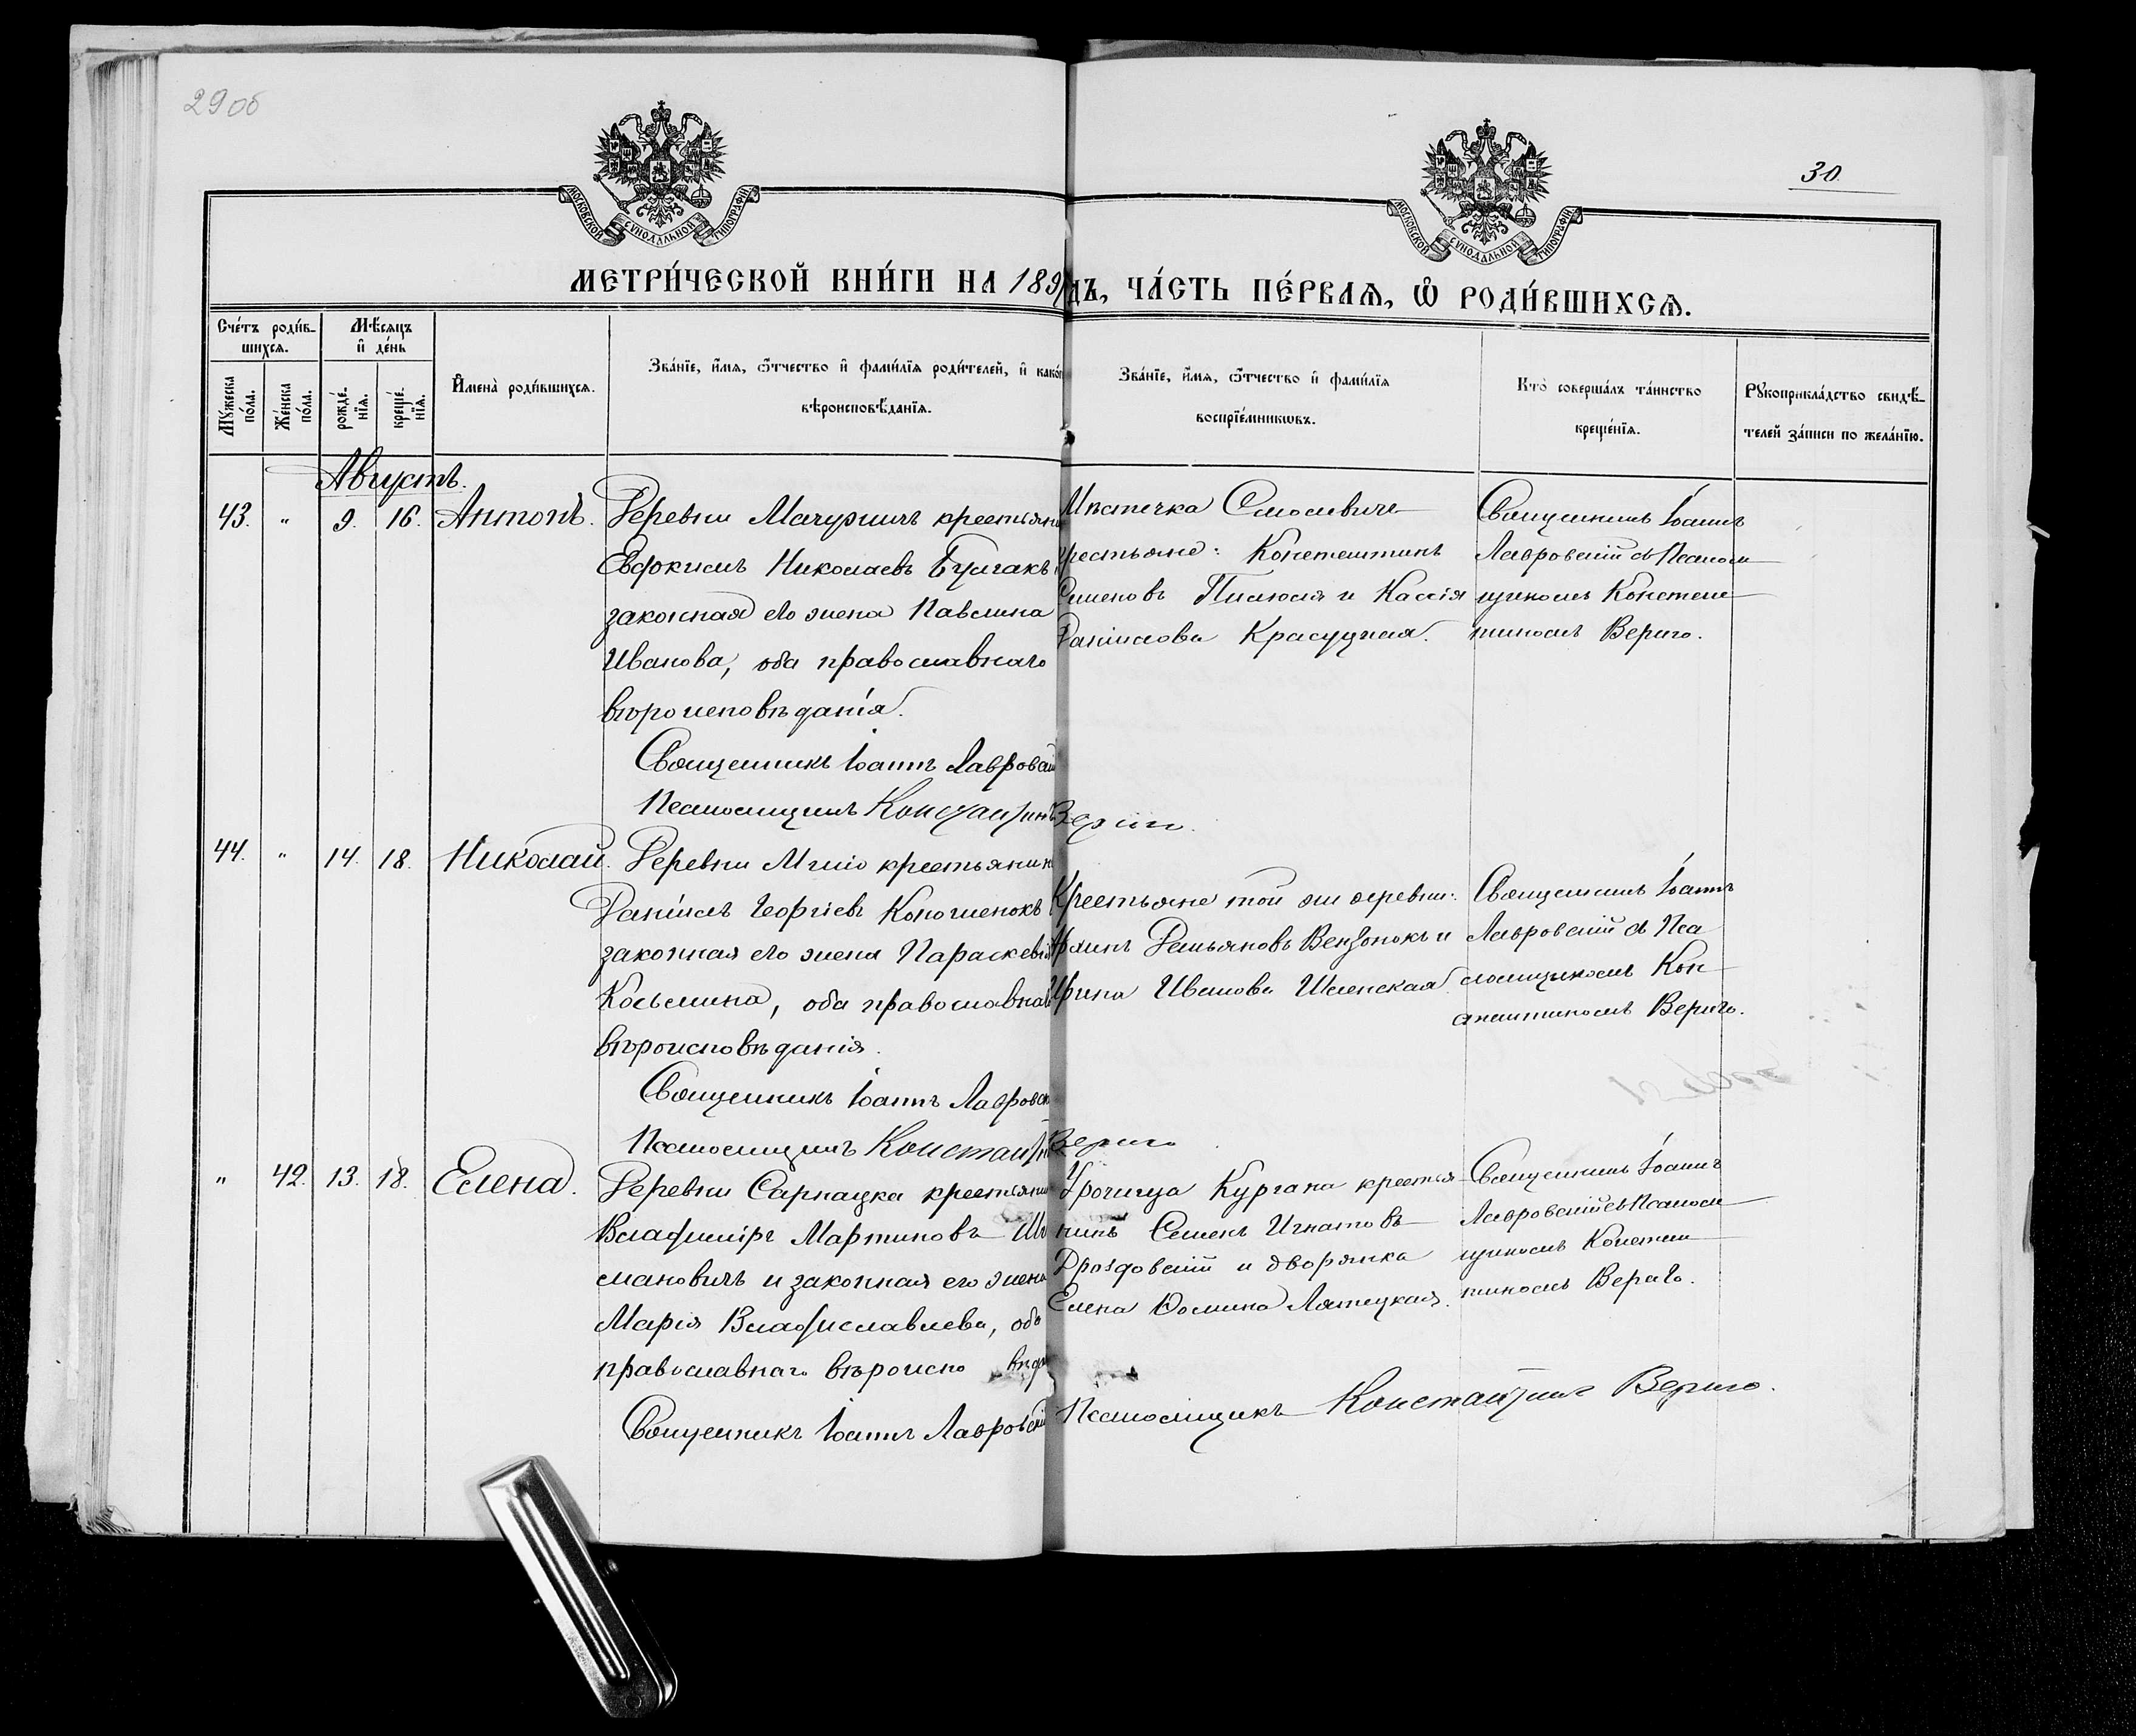 29 об
30
МОСКОВСКОЙ СУНОДАЛЬНОЙ ТИПОГРАФІИ.
МОСКОВСКОЙ СУНОДАЛЬНОЙ ТИПОГРАФІИ.
МЕТРИ́ЧЕСКОЙ КНИ́ГИ НА 189
ДЪ, ЧА́СТЬ ПЕ́РВАѦ, Ѽ РОДИ́ВШИХСѦ.
Сче́тъ роди́в-
шихся.
Мѣсяцъ
и҆ де́нь
Му́жеска
по́ла.
Же́нска
по́ла.
рожде́-
нїѧ.
креще́-
нїѧ.
И҆мена̀ роди́вшихся.
Зва́нїе, и҆́мѧ, ѻ҆́тчество и҆ фами́лїѧ роди́телей, и҆ како́г
вѣроисповѣ́данїѧ.
Зва́нїе, и҆́мѧ, ѻ҆́тчество и҆ фами́лїѧ
воспрїе́мникѡвъ.
Кто̀ соверша́лъ та́инство
креще́нїѧ.
Рꙋкоприкла́дство свидѣ́-
телей за́писи по жела́нїю.
Августъ.
43. " 9. 16. Антонъ.
Деревни Мачужичъ крестьянин
Евфкимъ Николаевъ Булгакъ
законная его жена Павлина
Иванова, оба православнаго
вѣроисповѣданія.
Священникъ Іоаннъ Лавровскій
Псаломщикъ Константинъ
Мѣстечка Смолевичъ
крестьяне: Константинъ
Семеновъ и Кассія
Даніилова Красуцкая.
Священникъ Іоаннъ
Лавровскій съ Псалом
щикомъ Констан
тиномъ Вериго.
Вериго.
44. " 14. 18. Николай.
Деревни крестьянин
Даніилъ Георгіевъ
законная его жена Параскевія
Косьмина, оба православнаго
вѣроисповѣданія.
Священникъ Іоаннъ Лавровск
Псаломщикъ Константин
Крестьяне той же деревни:
Демьяновъ и
Ирина Иванова
Священникъ Іоаннъ
Лавровскій съ Пса
ломщикомъ Кон
стантиномъ Вериго.
Вериго
" 42. 13. 18. Елена.
Деревни крестьянин
Владиміръ Мартиновъ Шы
мановичъ и законная его жена
Марія Владиславлева, оба
православнаго вѣроиспо вѣдан
Священникъ Іоаннъ Лавровскій
Урочища Кургана крестья
нинъ Семенъ Игнатовъ
Дроздовскій и дворянка
Елена Лятецкая.
Священникъ Іоаннъ
Лавровскій съ Псалом
щикомъ Констан
тиномъ Вериго.
Псаломщикъ Константинъ Вериго.